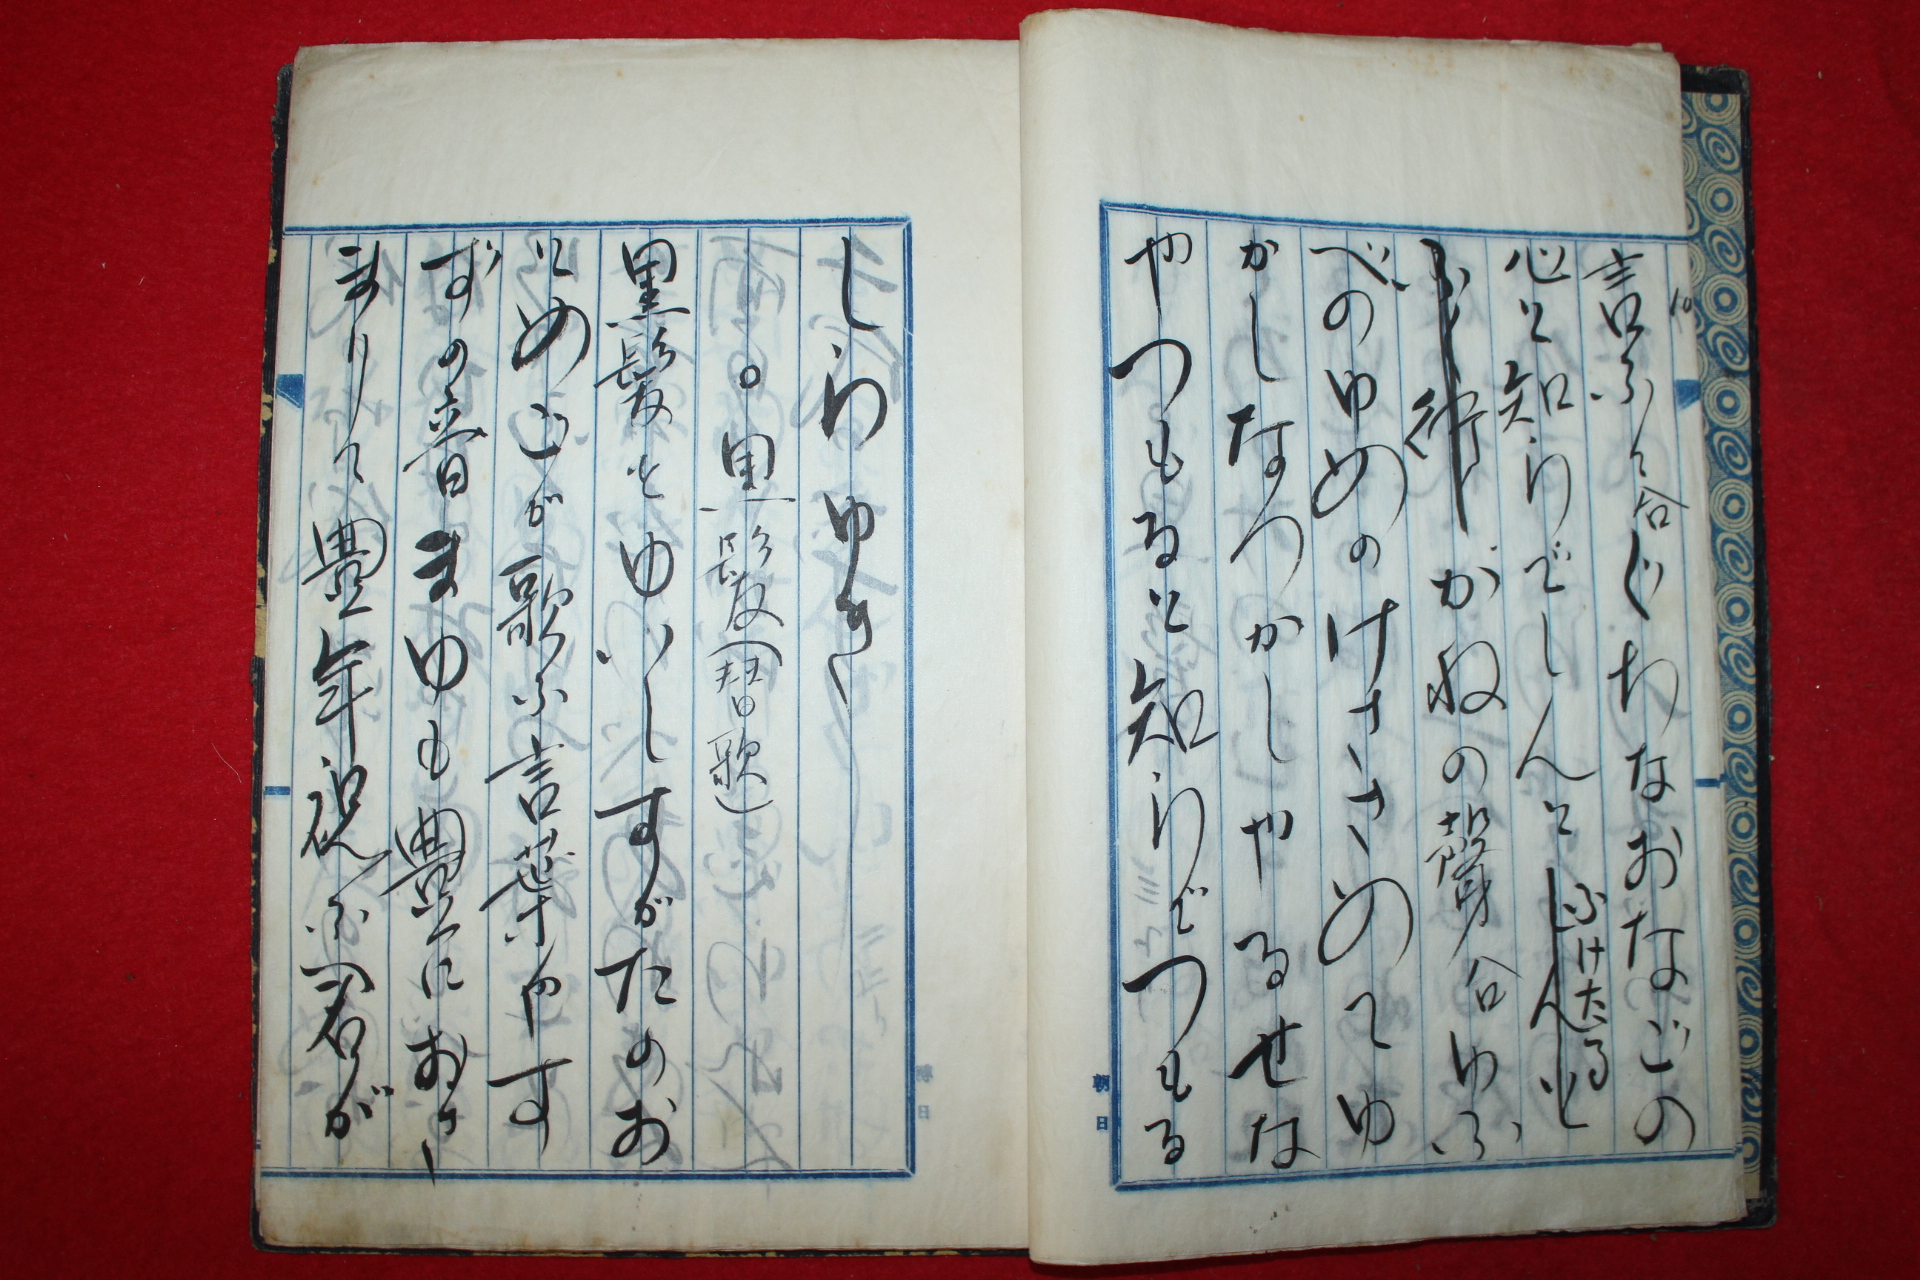 10
言ふて合ぐちなおなごの
心と知らでしんと ふけたる
がねの聲合ゆふ
べのゆめのけさ、さめてゆ
かしなつかしやるせな
やつもると知らでつもる
朝日
しらゆき
○黒髪(替歌)
黒髪をゆいしすがたのお
とめ心が歌ふ言葉やす
ずの音まゆも豊におさ
まりて豊年祝ふ君が